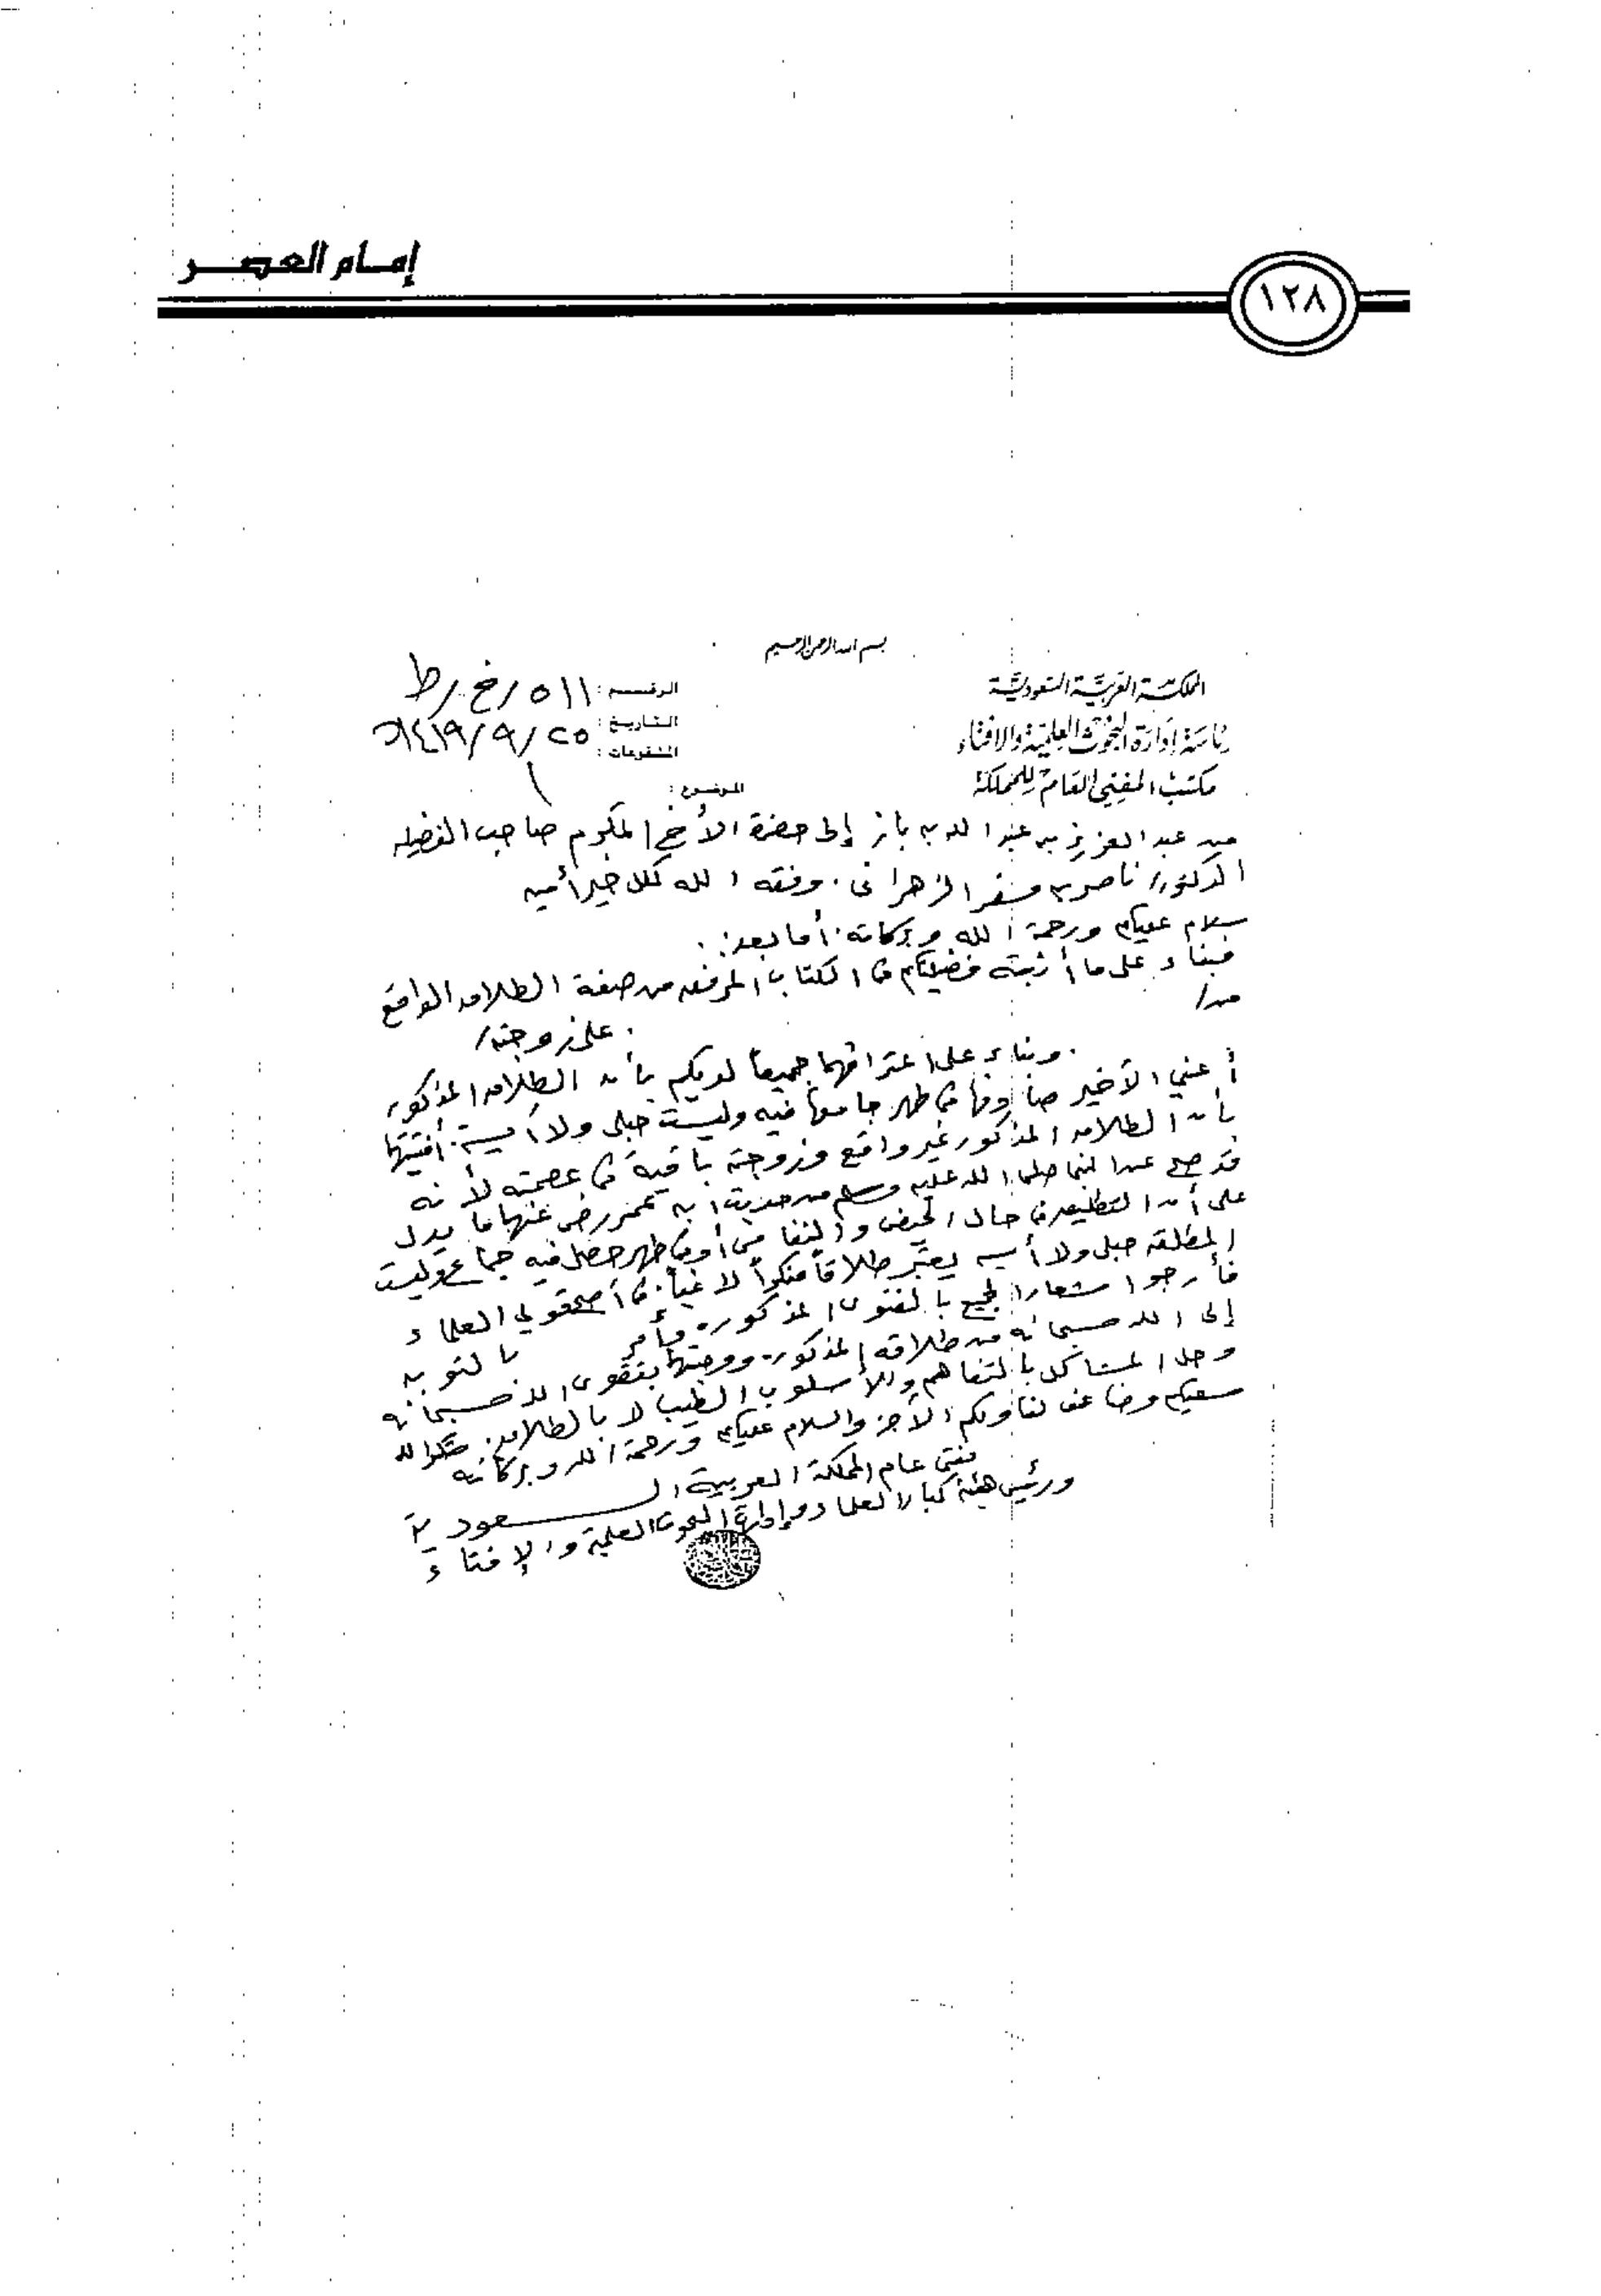 إمام العصر
١٢٨
بسم الله الرحمن الرحيم
المملكة العربية السعودية
رئاسة إدارة البحوث العلمية والافتاء
مكتب المفتي العام للمملكة
الرقم : ٥١١ / خ / ط
التاريخ : ٢٥ / ٩ / ١٤١٩ هـ
المشفوعات : ١
الموضوع :
من عبد العزيز بن عبد الله بن باز إلى حضرة الأخ المكرم صاحب الفضيلة
الدكتور / ناصر بن مسفر الزهراني . وفقه الله لكل خير أمين
سلام عليكم ورحمة الله وبركاته . أما بعد :
فبناء على ما أثبته فضيلتكم في الكتاب المرفق من صفة الطلاق الواقع
من /
على زوجته /
. وبناء على اعترافهما جميعا لديكم بأن الطلاق المذكور
أعني الأخير صادفها في طهر جامعها فيه وليست حبلى ولا آيسة . أفتيتها
بأن الطلاق المذكور غير واقع وزوجته باقية في عصمته لأنه
قد صح عن النبي صلى الله عليه وسلم من حديث ابن عمر رضي عنهما ما يدل
على أن التطليق في حال الحيض والنفاس أو في طهر حصل فيه جماع وليست
المطلقة حبلى ولا آيسة يعتبر طلاقاً منكراً لاغياً . في أصح قولي العلماء
فأرجوا إشعار الجميع بالفتوى المذكورة وأمر بالتوبه
إلى الله سبحانه من طلاقه المذكور . ووصيتها بتقوى الله سبحانه
وحل المشاكل بالتفاهم والأسلوب الطيب لا بالطلاق . شكر الله
سعيكم وضاعف لنا ولكم الأجر والسلام عليكم ورحمة الله وبركاته
مفتي عام المملكة العربية السعودية
ورئيس هيئة كبار العلماء وإدارة البحوث العلمية والإفتاء